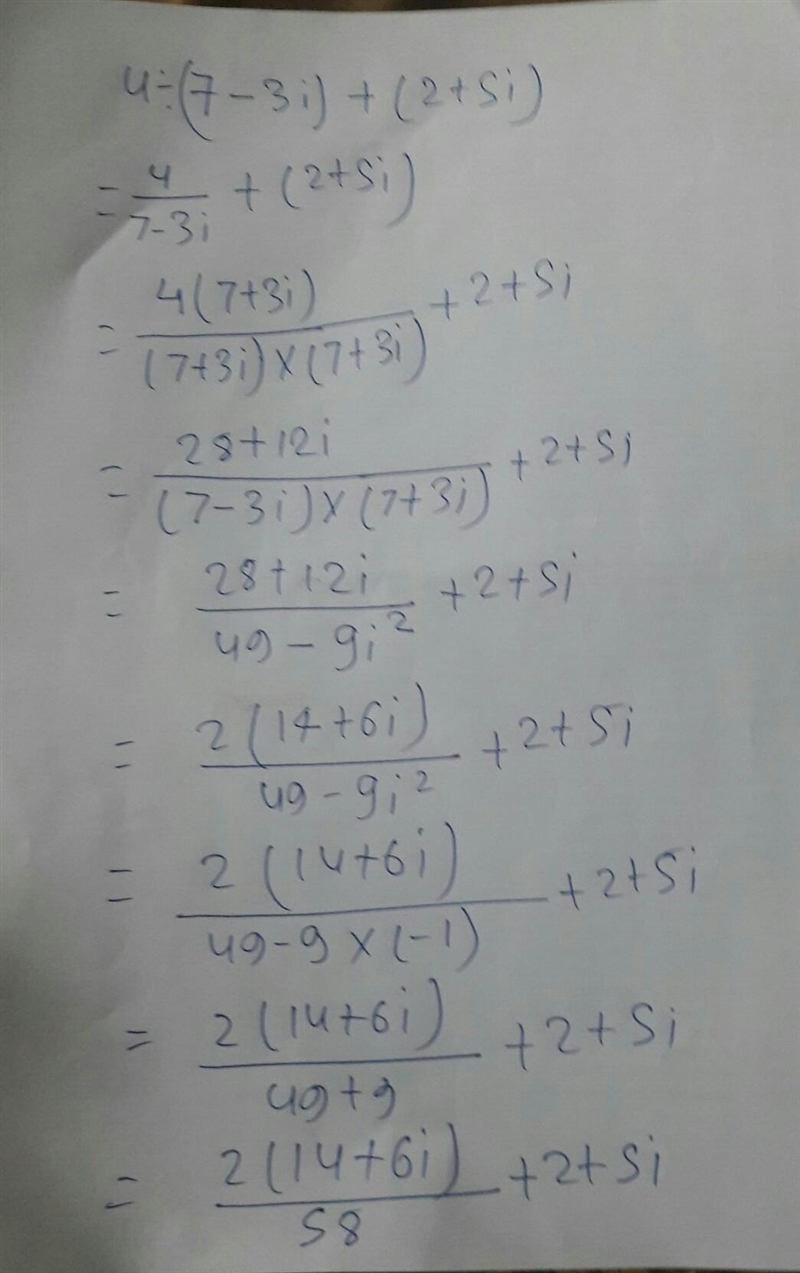 4÷(7-3i)+(2+5i)
= 4/7-3i + (2+5i)
= 4(7+3i)/(7+3i)×(7+3i) + 2+5i
= 28+12i/(7-3i)×(7+3i) + 2+5i
= 28+12i/49-9i² + 2+5i
= 2(14+6i)/49-9i² + 2+5i
= 2(14+6i)/49-9×(-1) + 2+5i
= 2(14+6i)/49+9 + 2+5i
= 2(14+6i)/58 + 2+5i